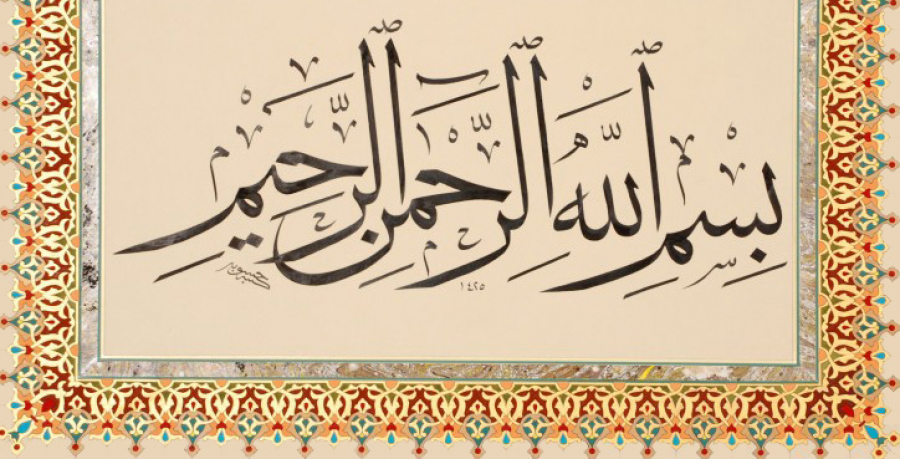 بِسْمِ اللّٰهِ الرَّحْمٰنِ الرَّحِيْمِ
١٤٢٥